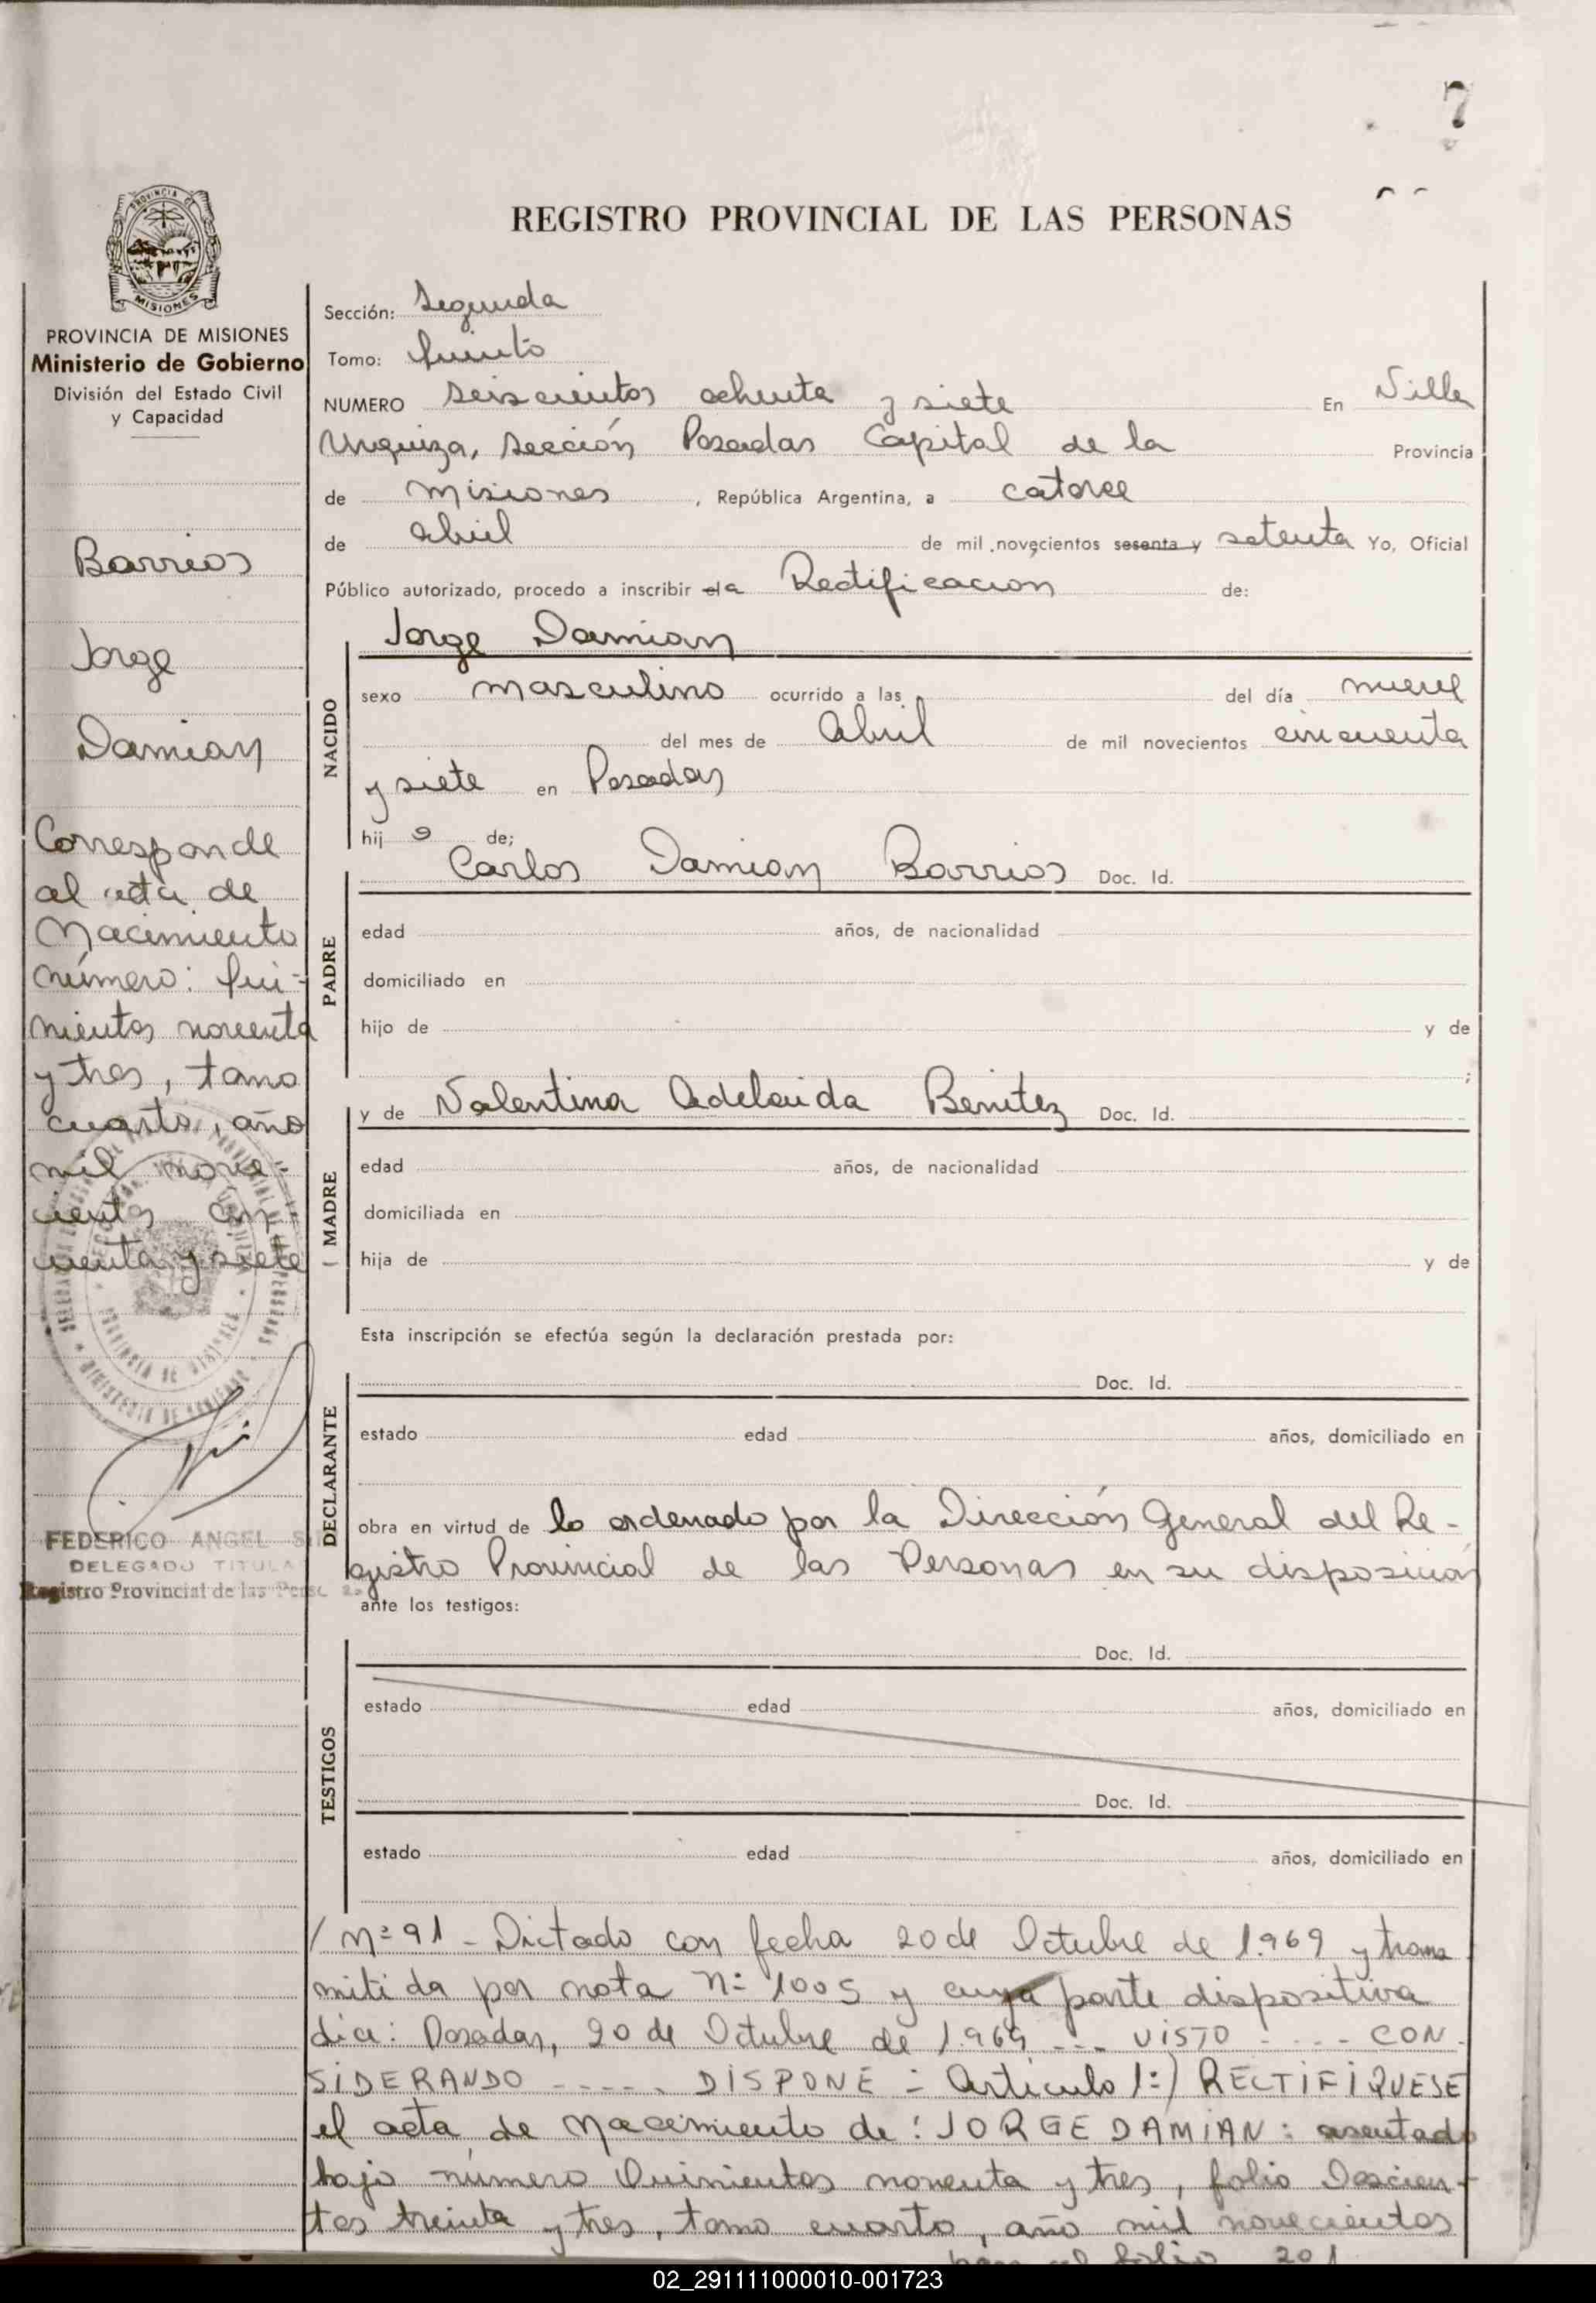 7
REGISTRO PROVINCIAL DE LAS PERSONAS
PROVINCIA DE
MISIONES
PROVINCIA DE MISIONES
Ministerio de Gobierno
División del Estado Civil
y Capacidad
Barrios
Jorge
Damian
Corresponde
al acta de
Nacimiento
número: Qui-
nientos noventa
y tres, tomo
cuarto, año
mil nove-
cientos cin-
cuenta y siete
FEDERICO ANGEL
DELEGADO TITULA
Registro Provincial de las Perso
Sección: Segunda
Tomo: Quinto
NUMERO Seiscientos ochenta y siete En Villa
Urquiza, Sección Posadas Capital de la Provincia
de Misiones , República Argentina, a catorce
de abril de mil novecientos sesenta y setenta Yo, Oficial
Público autorizado, procedo a inscribir el a Rectificacion de:
Jorge Damian
NACIDO
sexo masculino ocurrido a las del día nueve
del mes de Abril de mil novecientos cincuenta
y siete en Posadas
hij o de;
PADRE
Carlos Damian Barrios Doc. Id.
edad años, de nacionalidad
domiciliado en
hijo de y de
;
MADRE
y de Valentina Adelaida Benitez Doc. Id.
edad años, de nacionalidad
domiciliada en
hija de y de
Esta inscripción se efectúa según la declaración prestada por:
DECLARANTE
Doc. Id.
estado edad años, domiciliado en
obra en virtud de lo ordenado por la Dirección General del Re-
gistro Provincial de las Personas en su disposición
ante los testigos:
TESTIGOS
Doc. Id.
estado edad años, domiciliado en
Doc. Id.
estado edad años, domiciliado en
/ Nº 91 - Dictado con fecha 20 de Octubre de 1.969 y trans
mitida por nota Nº 1005 y cuya parte dispositiva
dice: Posadas, 20 de Octubre de 1.969 --- VISTO ---- CON-
SIDERANDO ----- DISPONE = Articulo 1º) RECTIFIQUESE
el acta de Nacimiento de: JORGE DAMIAN: asentado
bajo número Quinientos noventa y tres, folio Doscien-
tos treinta y tres, tomo cuarto, año mil novecientos
folio 201
02_291111000010-001723